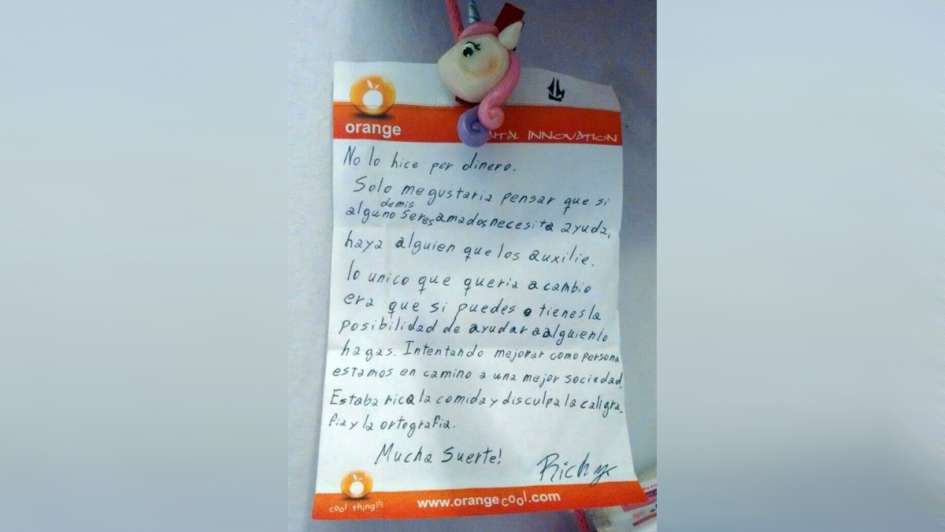 orange
NTAL INNOVATION
No lo hice por dinero.
Solo me gustaria pensar que si
alguno demis seres amados necesita ayuda,
haya alguien que los auxilie.
lo unico que queria a cambio
era que si puedes o tienes la
posibilidad de ayudar a alguien lo
hagas. Intentando mejorar como persona
estamos en camino a una mejor sociedad.
Estaba rica la comida y disculpa la caligra-
fia y la ortografia.
Mucha Suerte!
Richy
cool things
www.orangecool.com